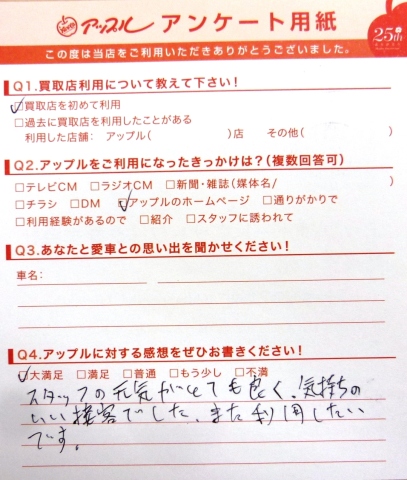 アップル アンケート用紙
25th
この度は当店をご利用いただきありがとうございました。
Q1.買取店利用について教えて下さい!
☑買取店を初めて利用
□過去に買取店を利用したことがある
利用した店舗: アップル( )店 その他( )
Q2.アップルをご利用になったきっかけは?(複数回答可)
□テレビCM □ラジオCM □新聞・雑誌(媒体名/ )
□チラシ □DM ☑アップルのホームページ □通りがかりで
□利用経験があるので □紹介 □スタッフに誘われて
Q3.あなたと愛車との思い出を聞かせください!
車名:
Q4.アップルに対する感想をぜひお書きください!
☑大満足 □満足 □普通 □もう少し □不満
スタッフの元気がとても良く、気持ちの
いい接客でした。また利用したい
です。